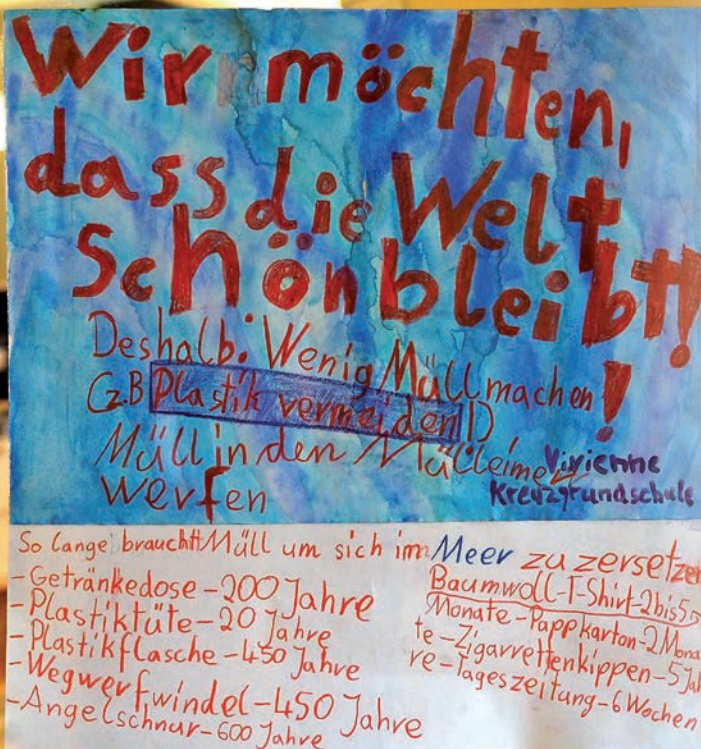 Wir möchten,
dass die Welt
schön bleibt!
Deshalb: Wenig Müll machen!
(z.B Plastik vermeiden!),
Müll in den Mülleimer
werfen
Vivienne
Kreuzgrundschule
So lange braucht Müll um sich im Meer zu zersetzen
-Getränkedose-200 Jahre
-Plastiktüte-20 Jahre
-Plastikflasche-450 Jahre
-Wegwerfwindel-450 Jahre
-Angelschnur-600 Jahre
Baumwoll-T-Shirt-2bis5
Monate-Pappkarton-2Mona
te-Zigarrettenkippen-5Jah
re-Tageszeitung-6Wochen